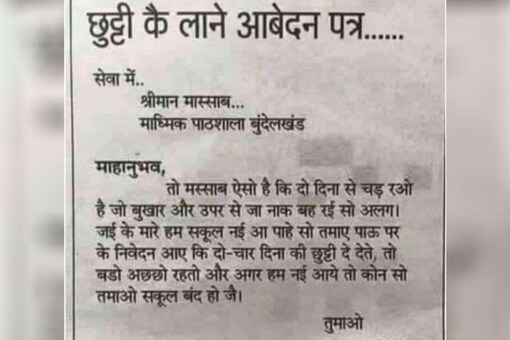 छुट्टी कै लाने आबेदन पत्र......
सेवा में..
श्रीमान मास्साब...
माध्मिक पाठशाला बुंदेलखंड
माहानुभव,
तो मस्साब ऐसो है कि दो दिना से चड़ रओ
है जो बुखार और उपर से जा नाक बह रई सो अलग।
जई के मारे हम सकूल नई आ पाहे सो तमाए पाऊ पर
के निवेदन आए कि दो-चार दिना की छुट्टी दे देते, तो
बडो अछ्छो रहतो और अगर हम नई आये तो कोन सो
तमाओ सकूल बंद हो जै।
तुमाओ